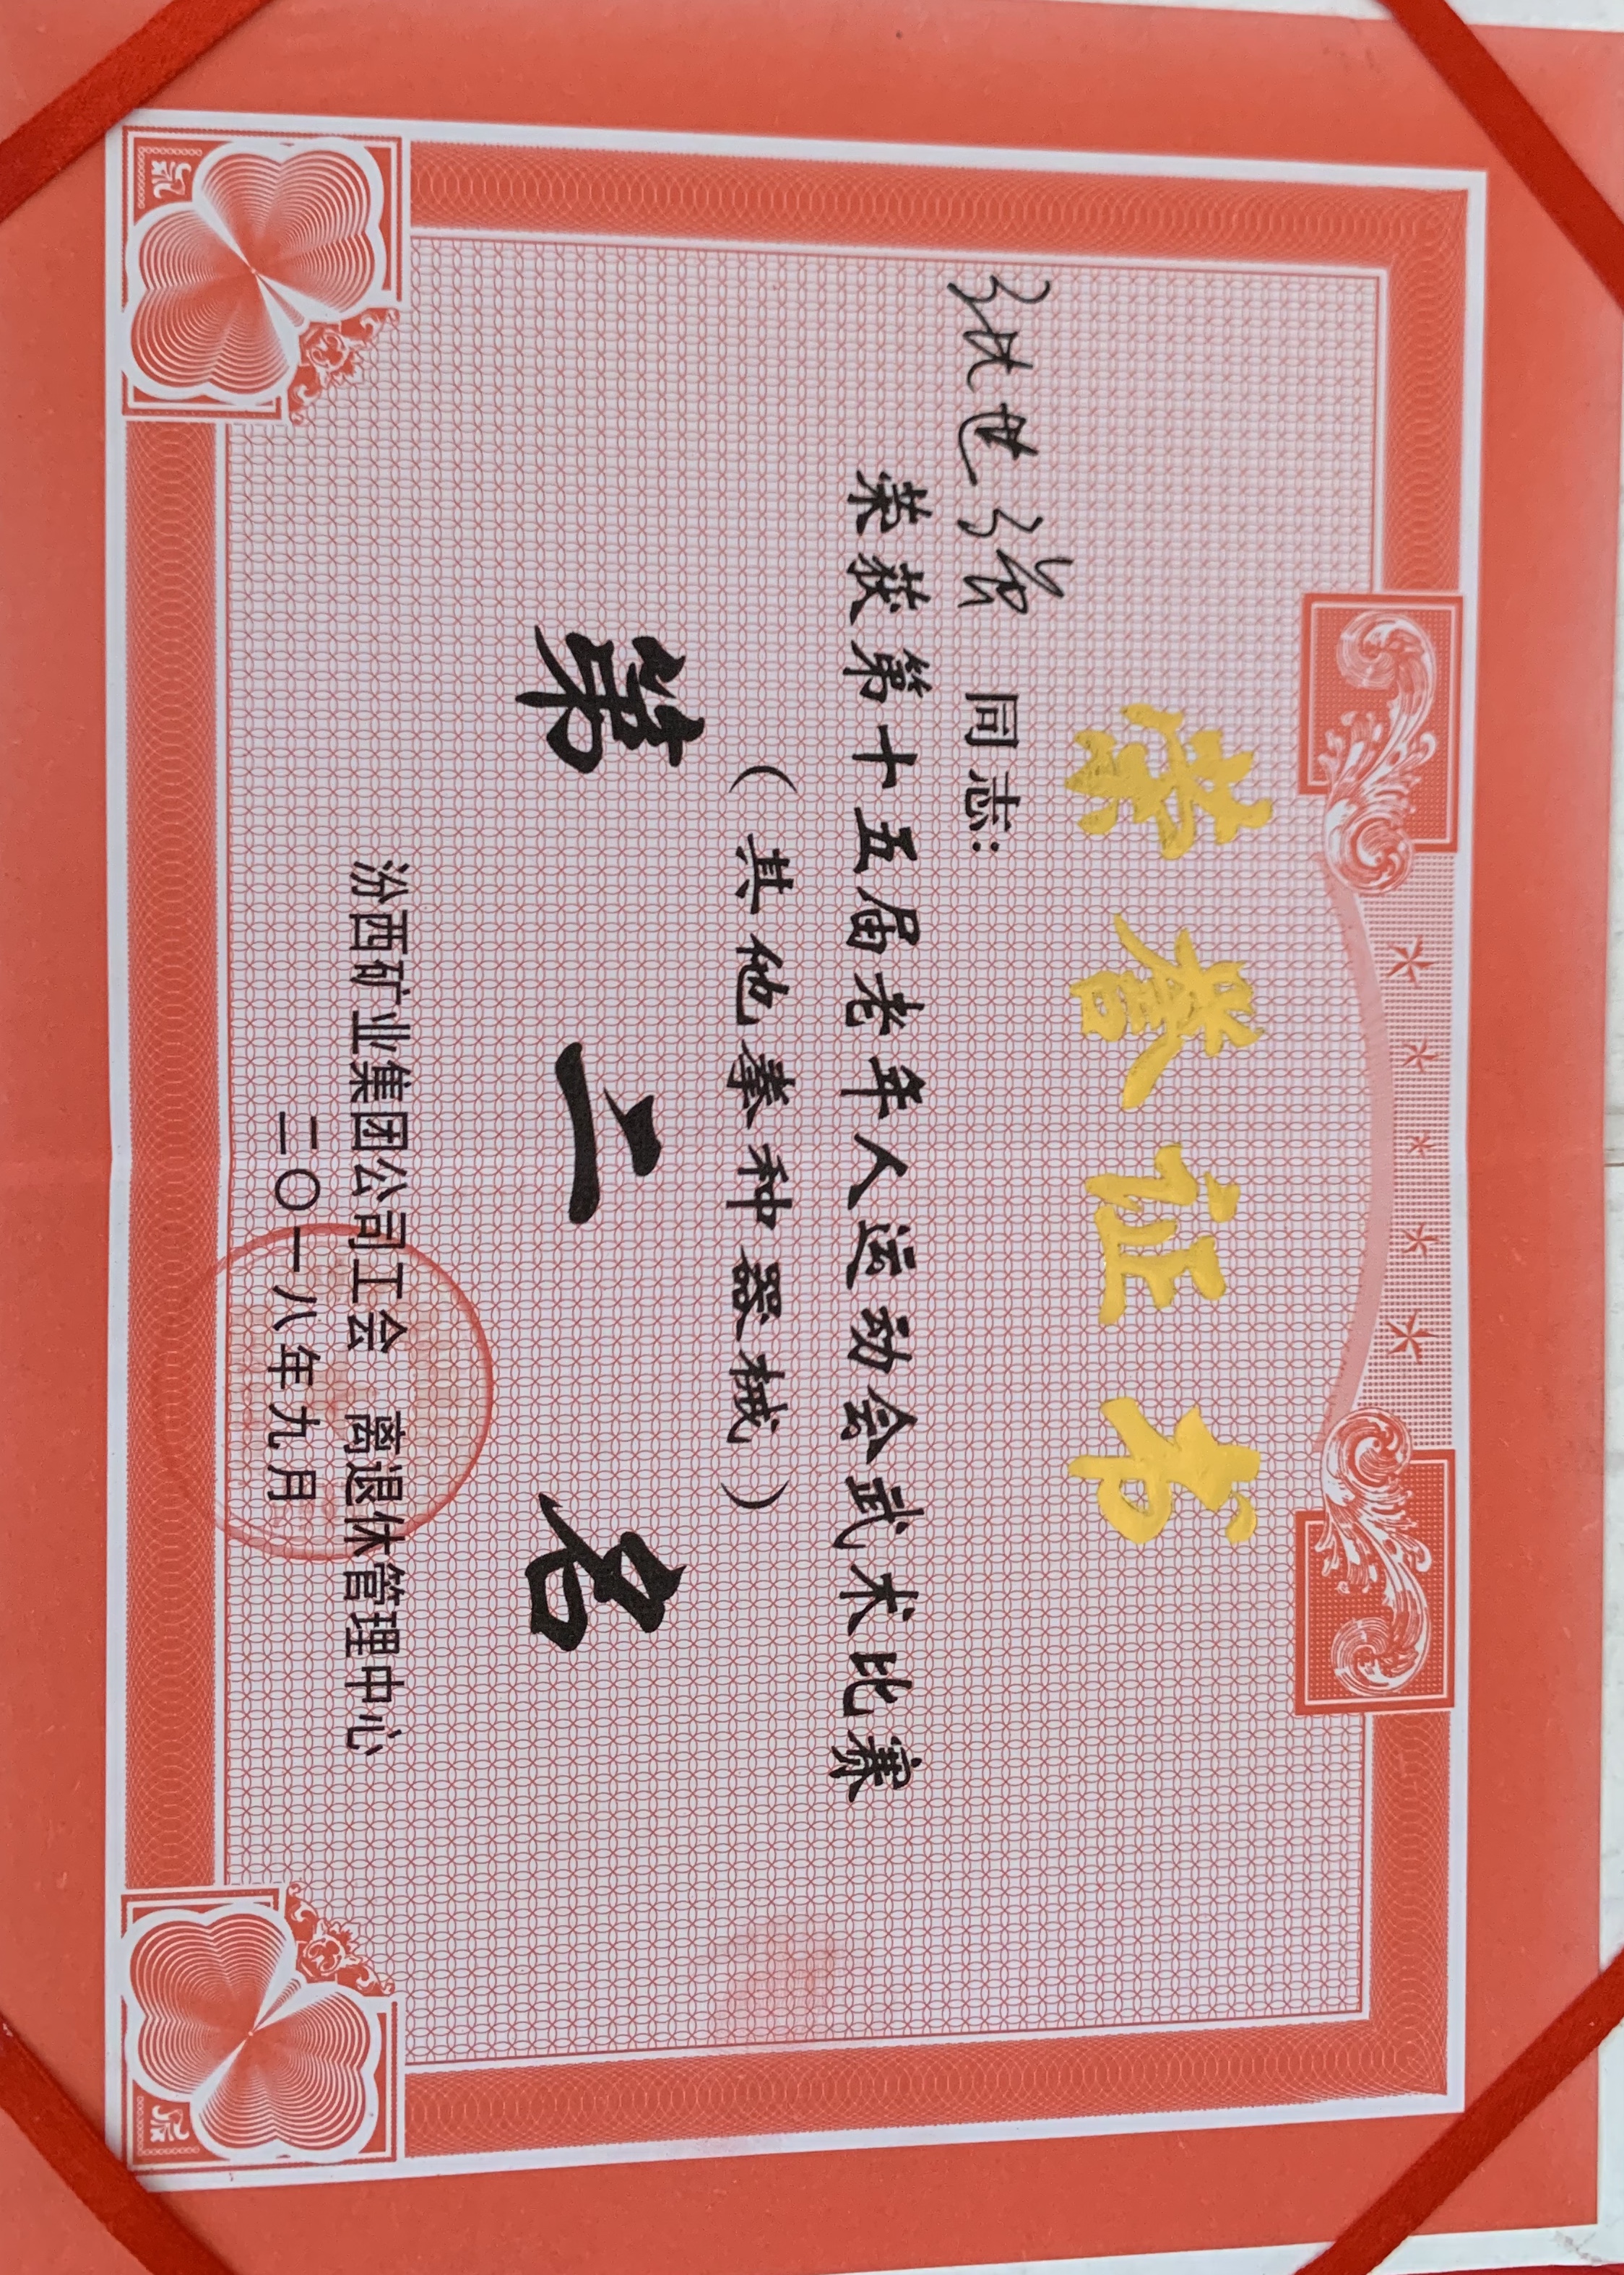 荣誉证书
张世强 同志:
荣获第十五届老年人运动会武术比赛
(其他拳种器械)
第二名
汾西矿业集团公司工会 离退休管理中心
二〇一八年九月